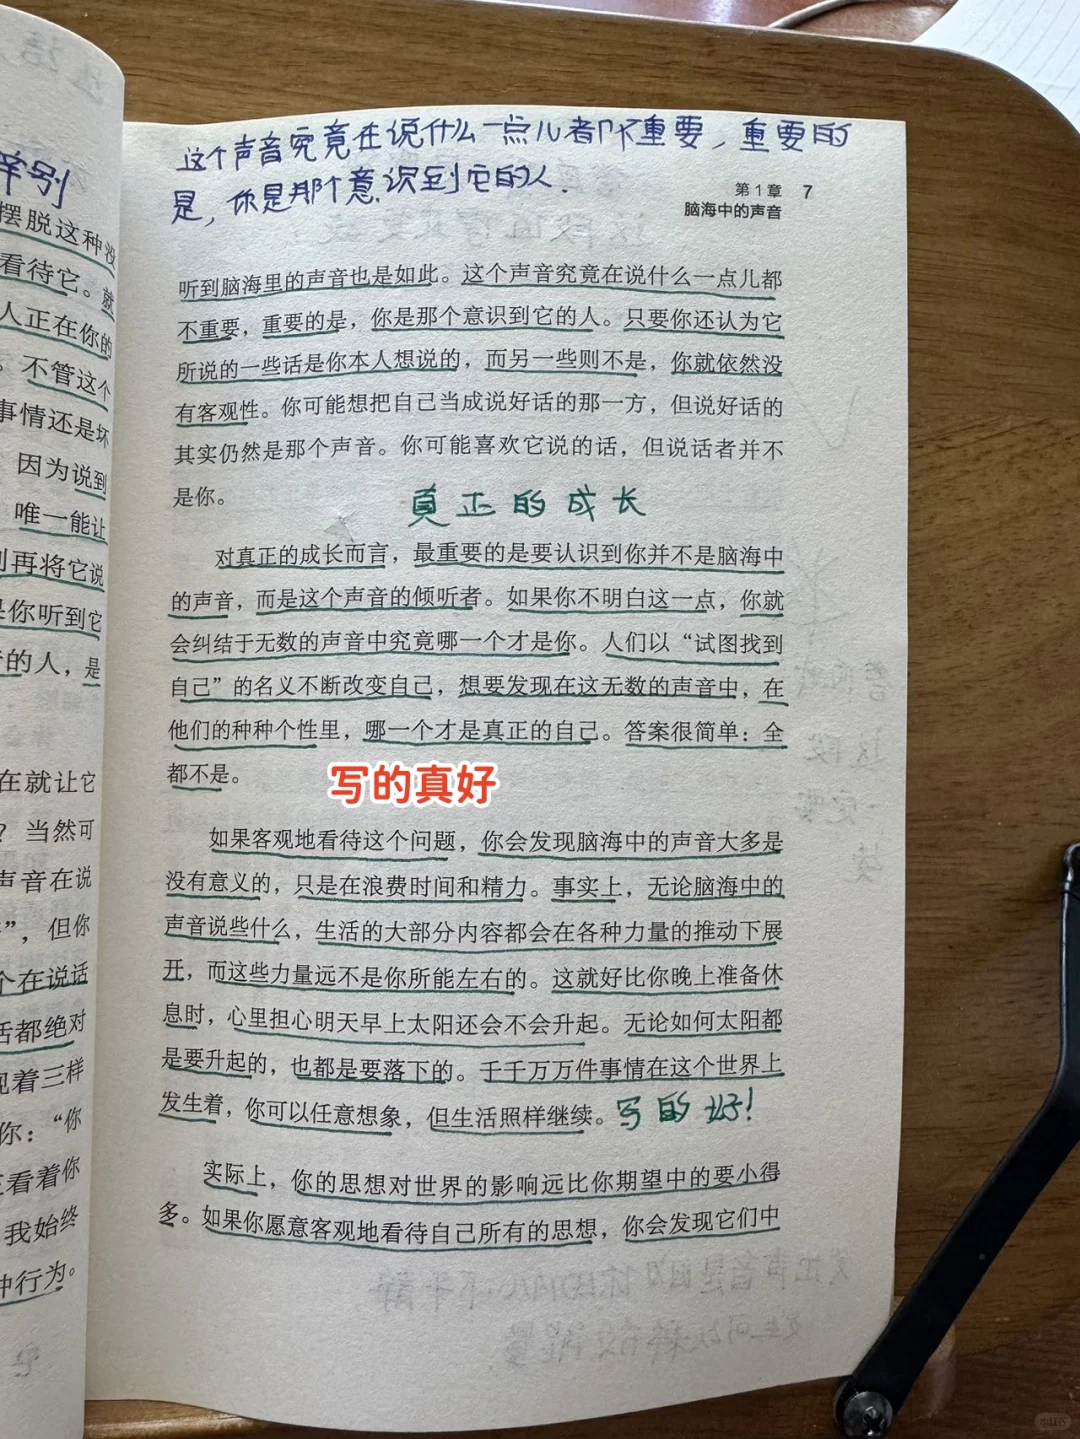 这个声音究竟在说什么一点儿都不重要，重要的
是，你是那个意识到它的人.
第1章 7
脑海中的声音
听到脑海里的声音也是如此。这个声音究竟在说什么一点儿都
不重要，重要的是，你是那个意识到它的人。只要你还认为它
所说的一些话是你本人想说的，而另一些则不是，你就依然没
有客观性。你可能想把自己当成说好话的那一方，但说好话的
其实仍然是那个声音。你可能喜欢它说的话，但说话者并不
是你。
真正的成长
对真正的成长而言，最重要的是要认识到你并不是脑海中
的声音，而是这个声音的倾听者。如果你不明白这一点，你就
会纠结于无数的声音中究竟哪一个才是你。人们以“试图找到
自己”的名义不断改变自己，想要发现在这无数的声音中，在
他们的种种个性里，哪一个才是真正的自己。答案很简单：全
都不是。
写的真好
如果客观地看待这个问题，你会发现脑海中的声音大多是
没有意义的，只是在浪费时间和精力。事实上，无论脑海中的
声音说些什么，生活的大部分内容都会在各种力量的推动下展
开，而这些力量远不是你所能左右的。这就好比你晚上准备休
息时，心里担心明天早上太阳还会不会升起。无论如何太阳都
是要升起的，也都是要落下的。千千万万件事情在这个世界上
发生着，你可以任意想象，但生活照样继续。写的好！
实际上，你的思想对世界的影响远比你期望中的要小得
多。如果你愿意客观地看待自己所有的思想，你会发现它们中
摆脱这种没
看待它。就
人正在你的
。不管这个
事情还是坏
因为说到
唯一能让
别再将它说
是你听到它
的人，是
在就让它
？当然可
声音在说
”，但你
个在说话
话都绝对
现着三样
你：“你
看着你
我始终
种行为。
小红书